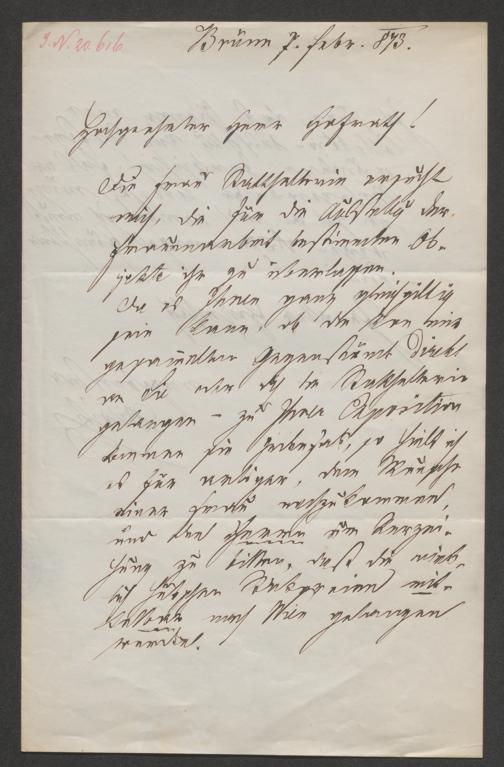 J. N. 20.616
Brünn 7. Febr. 873.
Hochgeehrter Herr Hofrath!
Die Frau Statthalterin ersucht
mich, die für die Ausstellg der
Frauenarbeit bestimmten Ob-
jekte ihr zu überlassen.
Da es Ihnen ganz gleichgiltig
sein kann, ob die von mir
gesammelten Gegenstände direkt
an Sie oder an die Statthalterin
gelangen – zu Ihrer Exposition
kommen sie jedenfalls, so hielt ich
es für artiger, dem Wunsche
einer Frau nachzukommen,
und bei Ihnen um Verzei-
hung zu bitten, daß die wirk-
lich hübschen Stickereien mit-
telbar nach Wien gelangen
werden.